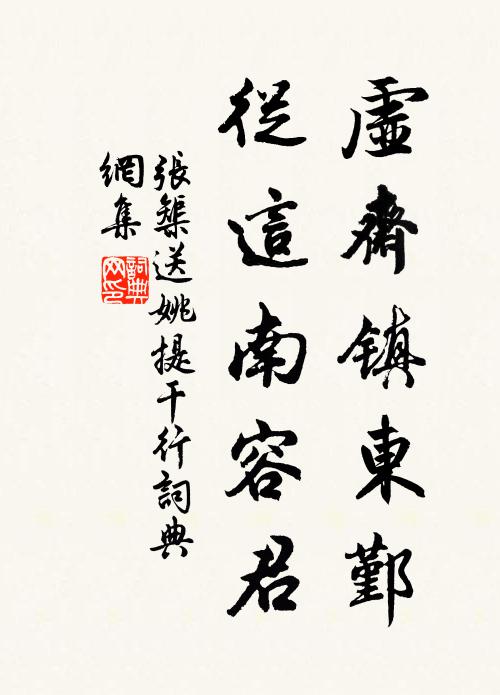 虛齋镇東鄞
從這南容君
張榘送姚提干行詞典
網集
詞典
网印